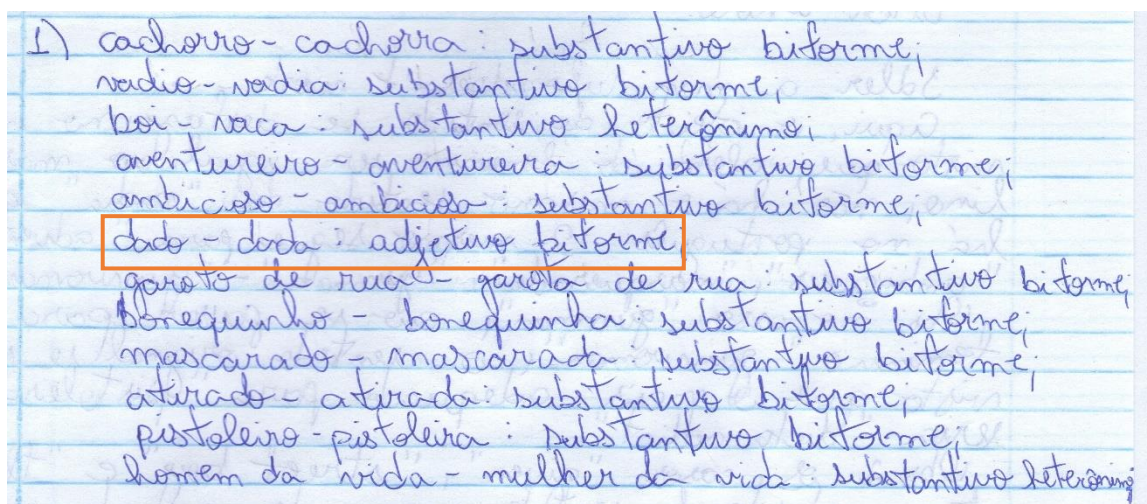 1) cachorro - cachorra : substantivo biforme;
vadio - vadia : substantivo biforme;
boi vaca : substantivo heterônimo;
aventureiro - aventureira : substantivo biforme;
ambicioso - ambiciosa : substantivo biforme;
dado - dada : adjetivo biforme;
garoto de rua - garota de rua : substantivo biforme;
bonequinho - bonequinha : substantivo biforme;
mascarado - mascarada substantivo biforme;
atirado - atirada : substantivo biforme;
pistoleiro - pistoleira : substantivo biforme;
homem da vida - mulher da vida : substantivo heterônimo